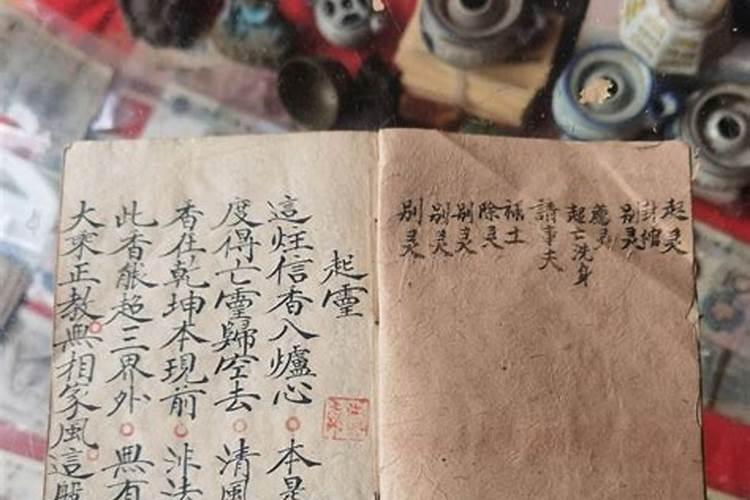 起灵
封棺
别灵
薦灵
起亡洗身
請事夫
禄土
除灵
别灵
别灵
别灵
起靈
這炷信香入爐心 本是
度得亡靈歸空去 清風
香在乾坤本現前 非法
此香能超三界外 無有
大乘正教無相家風這般